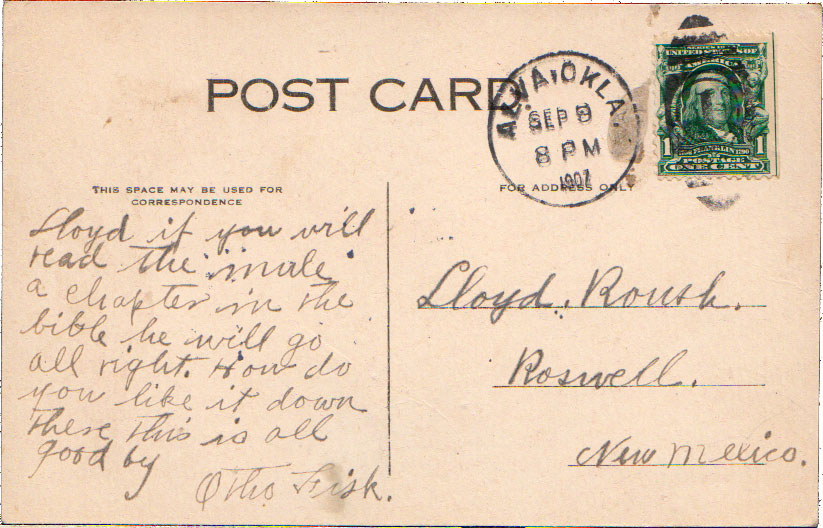 POST CARD
ALVA, OKLA.
SEP 3
8 PM
1907
SERIES 1902
UNITED STATES OF
AMERICA
1 FRANKLIN 1790 1
POSTAGE
ONE CENT
THIS SPACE MAY BE USED FOR
CORRESPONDENCE
FOR ADDRESS ONLY
Lloyd if you will
read the mule
a chapter in the
bible he will go
all right. How do
you like it down
there this is all
good by
Otho Fisk.
Lloyd. Roush.
Roswell.
New Mexico.